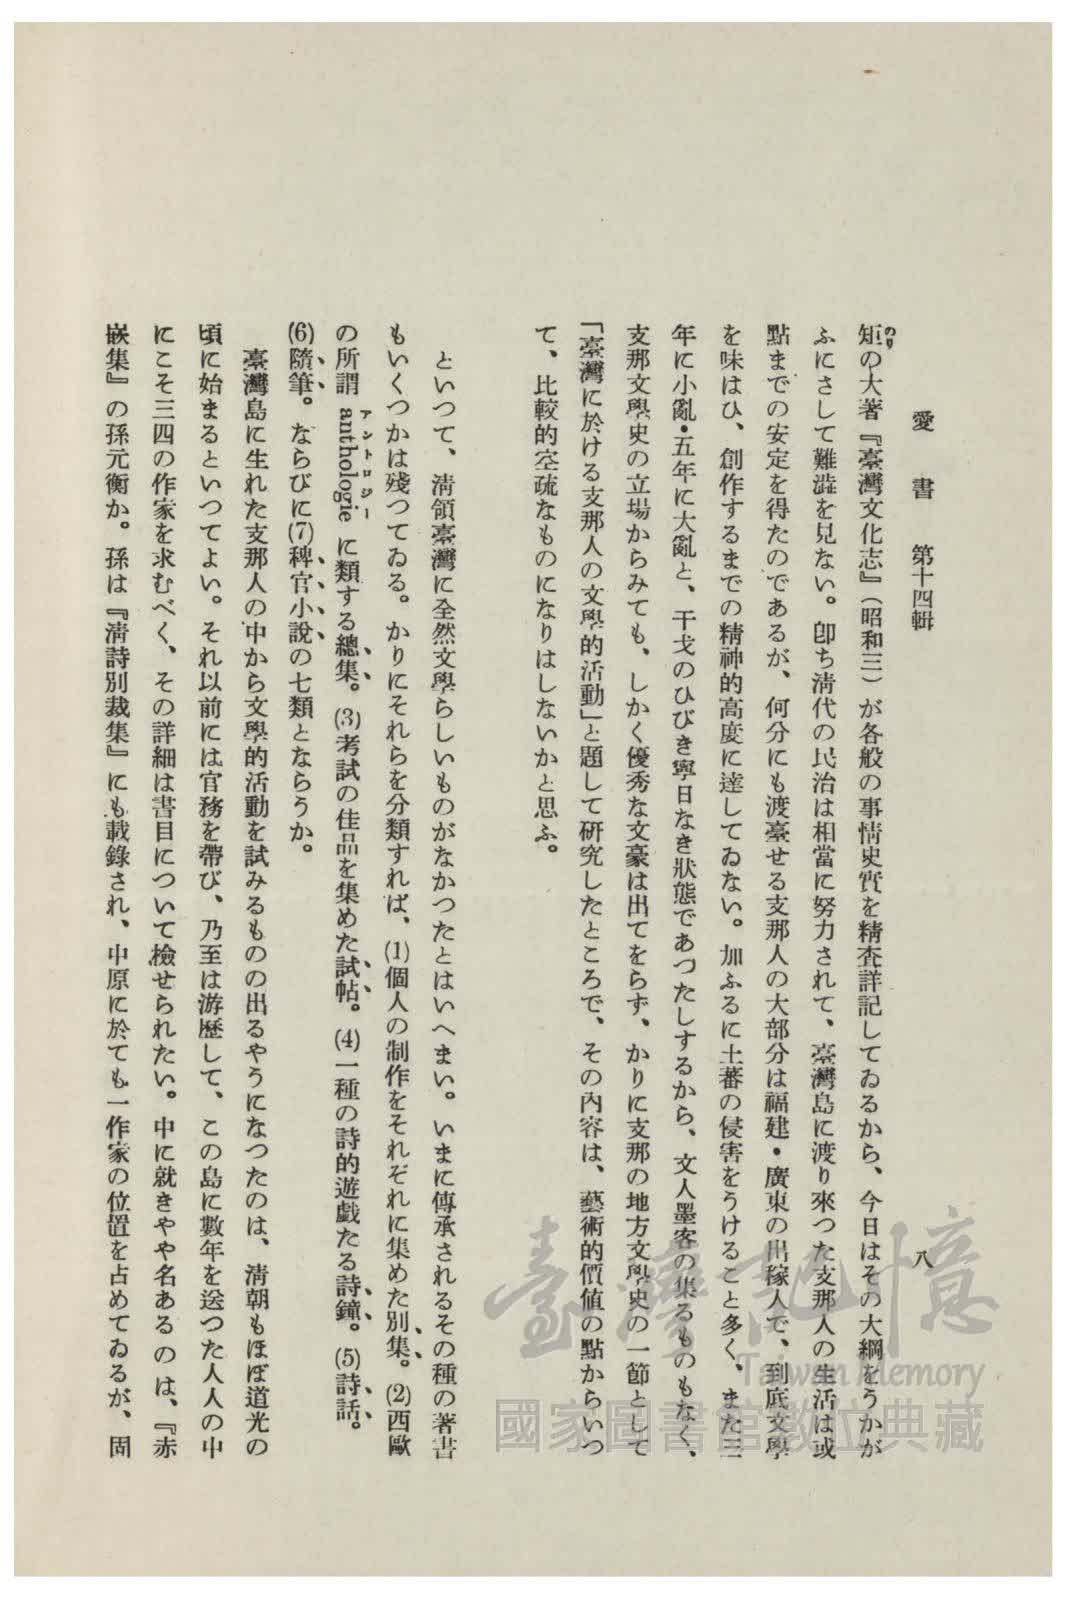 愛書　第十四輯　八
矩の大著『臺灣文化志』（昭和三）が各般の事情史實を精査詳記してゐるから、今日はその大綱をうかが
ふにさして難澁を見ない。卽ち淸代の民治は相當に努力されて、臺灣島に渡り來つた支那人の生活は或
點までの安定を得たのであるが、何分にも渡臺せる支那人の大部分は福建・廣東の出稼人で、到底文學
を味はひ、創作するまでの精神的高度に達してゐない。加ふるに土蕃の侵害をうけること多く、また三
年に小亂・五年に大亂と、干戈のひびき寧日なき狀態であつたしするから、文人墨客の集るものもなく、
支那文學史の立場からみても、しかく優秀な文豪は出てをらず、かりに支那の地方文學史の一節として
「臺灣に於ける支那人の文學的活動」と題して研究したところで、その內容は、藝術的價値の點からいつ
て、比較的空疏なものになりはしないかと思ふ。
といつて、淸領臺灣に全然文學らしいものがなかつたとはいへまい。いまに傳承されるその種の著書
もいくつかは殘つてゐる。かりにそれらを分類すれば、(1)個人の制作をそれぞれに集めた別集。(2)西歐
の所謂 anthologie に類する總集。(3)考試の佳品を集めた試帖。(4)一種の詩的遊戲たる詩鐘。(5)詩話。
(6)隨筆。ならびに(7)稗官小說の七類とならうか。
臺灣島に生れた支那人の中から文學的活動を試みるものの出るやうになつたのは、淸朝もほぼ道光の
頃に始まるといつてよい。それ以前には官務を帶び、乃至は游歷して、この島に數年を送つた人人の中
にこそ三四の作家を求むべく、その詳細は書目について檢せられたい。中に就きやや名あるのは、『赤
嵌集』の孫元衡か。孫は『淸詩別裁集』にも載錄され、中原に於ても一作家の位置を占めてゐるが、固
のり
アントロジー
臺灣記憶
Taiwan Memory
國家圖書館數位典藏